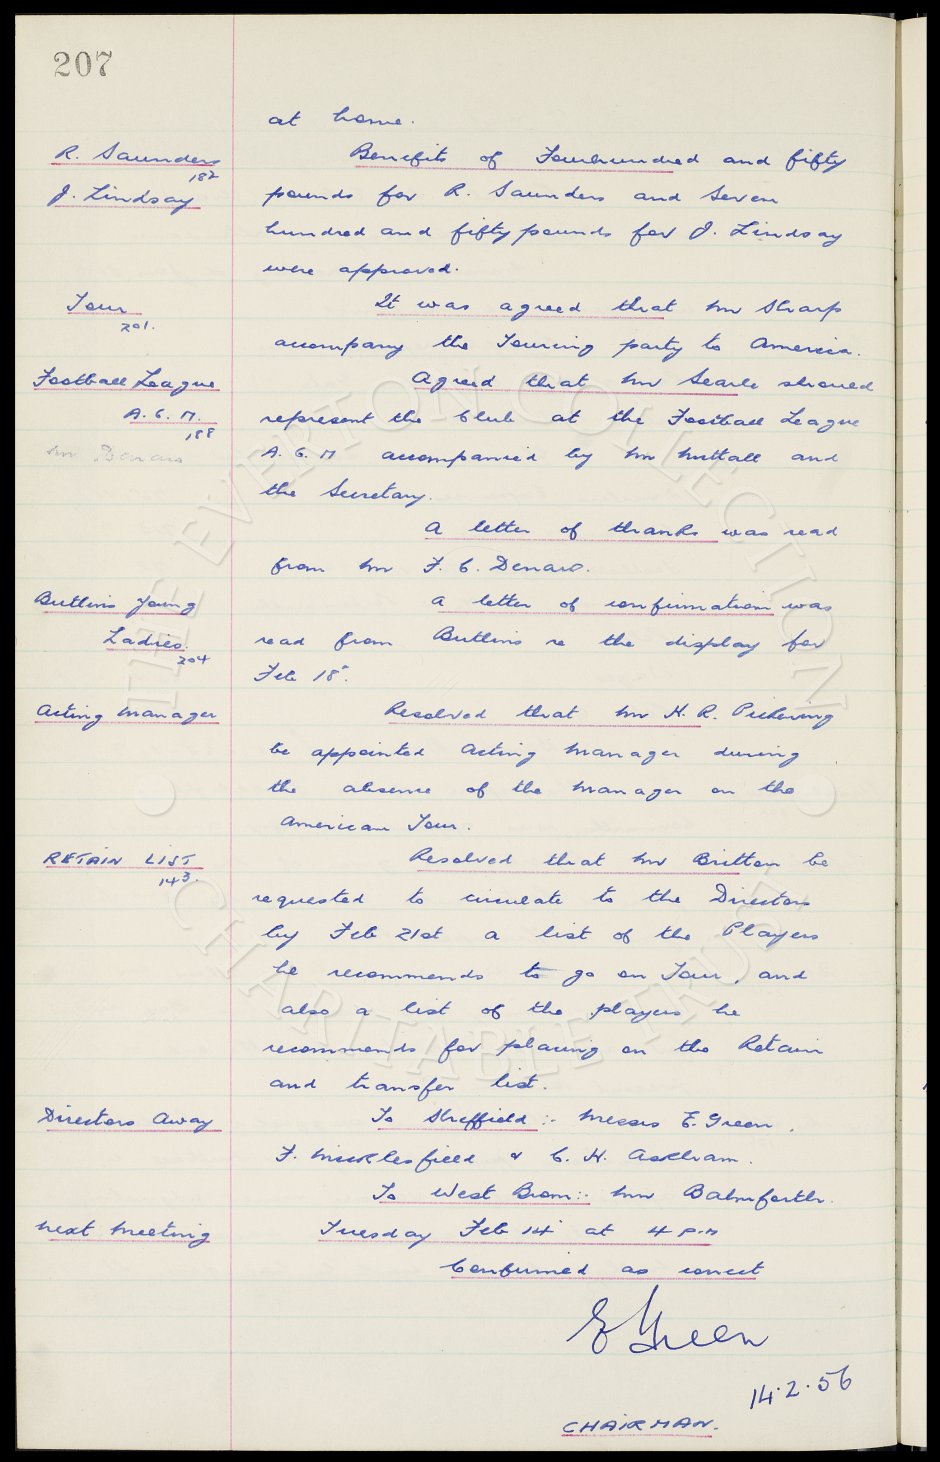 207
at home.
R. Saunders
182
J. Lindsay
Benefits of Fourhundred and fifty
pounds for R. Saunders and Seven
hundred and fifty pounds for J. Lindsay
were approved.
Tour
201.
It was agreed that Mr Sharp
accompany the Touring party to America.
Football League
A.G.M.
188
Agreed that Mr Searle should
represent the Club at the Football League
A.G.M accompanied by Mr Nuttall and
the Secretary.
Mr Denaro
A letter of thanks was read
from Mr F. C. Denaro.
Butlins Young
Ladies.
204
A letter of confirmation was
read from Butlins re the display for
Feb 18".
Acting Manager
Resolved that Mr H. R. Pickering
be appointed Acting Manager during
the absence of the Manager on the
American Tour.
RETAIN LIST
143.
Resolved that Mr Britton be
requested to circulate to the Directors
by Feb 21st a list of the Players
he recommends to go on Tour, and
also a list of the players he
recommends for placing on the Retain
and transfer list.
Directors Away
To Sheffield :- Messrs E. Green,
F. Micklesfield & C. H. Askham.
To West Brom :- Mr Balmforth.
Next Meeting
Tuesday Feb 14" at 4 P.M
Confirmed as correct
E Green
14.2.56
CHAIRMAN.
THE EVERTON COLLECTION
CHARITABLE TRUST